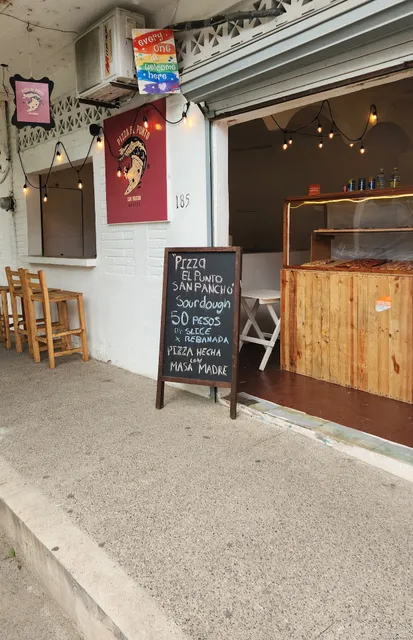 every
one
is
welcome
here
PIZZA EL PUNTO
SAN PANCHO
185
PIZZA
EL PUNTO
SAN PANCHO
Sourdough
50 PESOS
BY SLICE
X REBANADA
PIZZA HECHA
CON
MASA MADRE